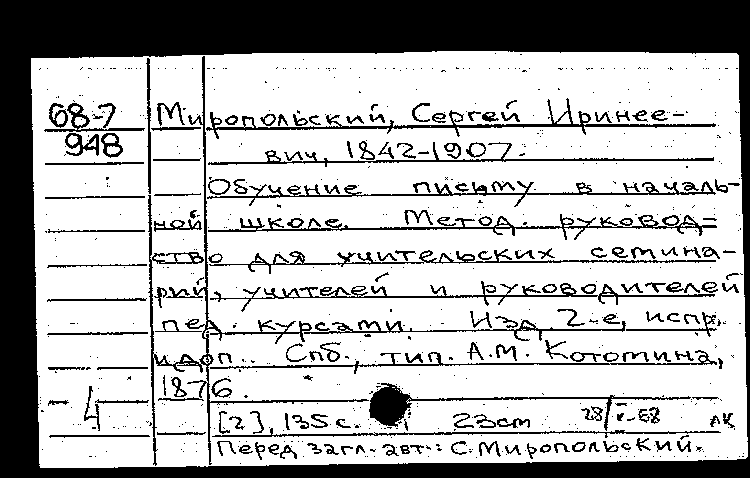 68-7 Миропольский, Сергей Иринее-
948 вич, 1842-1907.
Обучение письму в началь-
ной школе. Метод. руковод-
ство для учительских семина-
рий, учителей и руководителей
пед. курсами. Изд. 2-е, испр.
и доп. Спб., тип. А.М. Котомина,
1876.
4
[2], 135 с. 23 см 28/V-68 АК
Перед загл. авт.: С. Миропольский.